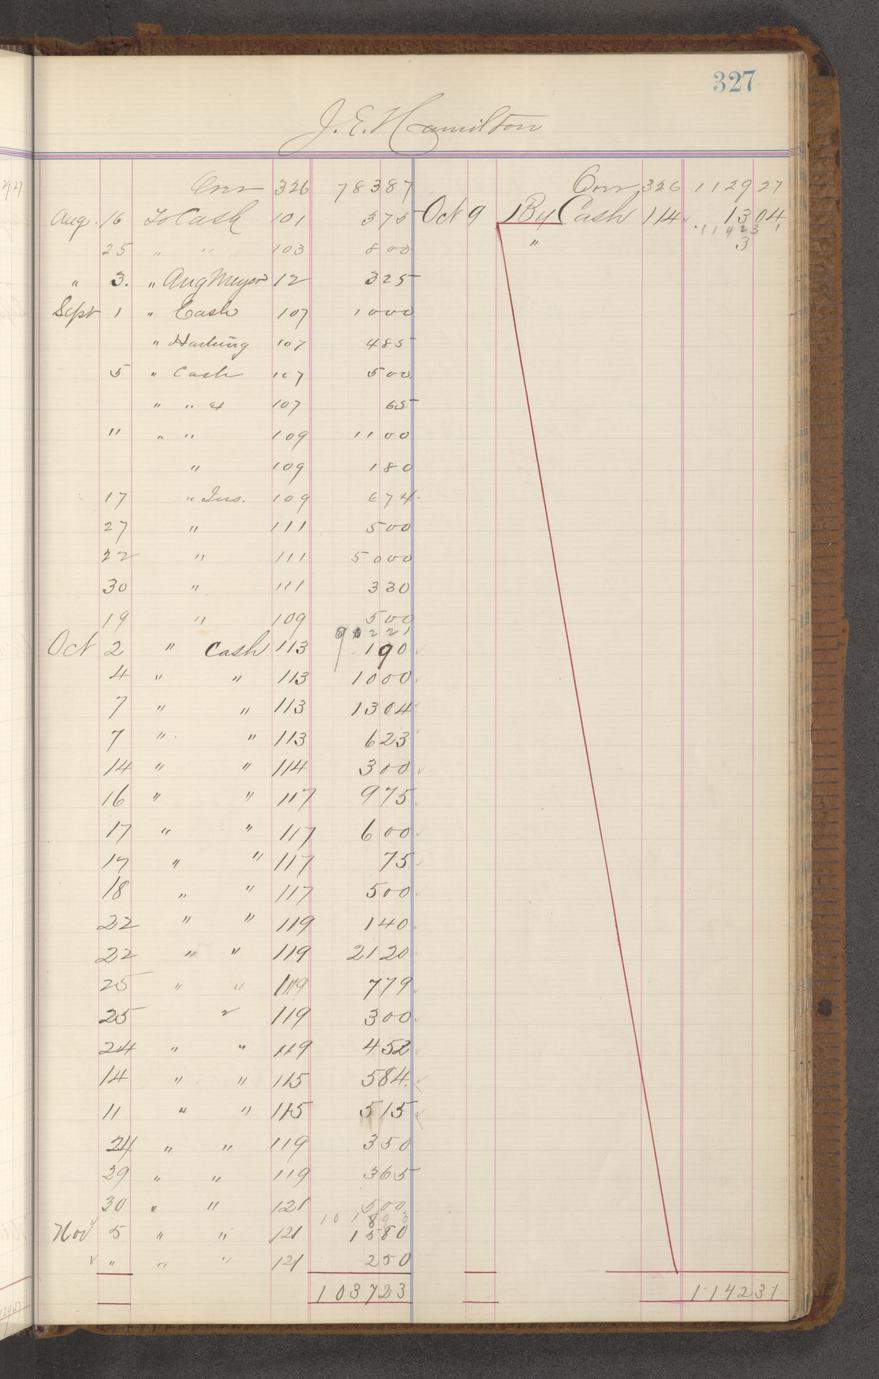 327
J. E. Hamilton
Over 326 78387 Over 326 112927
Aug. 16 To Cash 101 375 Oct 9 By Cash 114 1304
114231
25 " " 103 800 " 3
" 3. " Aug Meyer 12 325
Sept 1 " Cash 107 1000
" Hartung 107 485
5 " Cash 107 500
" " 107 65
" " " 109 1100
" 109 180
17 " Ins. 109 674
27 " 111 500
22 " 111 5000
30 " 111 330
19 " 109 500
90221
Oct 2 " Cash 113 190
4 " " 113 1000
7 " " 113 1304
7 " " 113 623
14 " " 114 300
16 " " 117 975
17 " " 117 600
17 " " 117 75
18 " " 117 500
22 " " 119 140
22 " " 119 2120
25 " " 119 779
25 " 119 300
24 " " 119 452
14 " " 115 584
11 " " 115 515
24 " " 119 350
29 " " 119 365
30 " " 121 500
101893
Nov 5 " " 121 1580
" " " 121 250
103723 114231